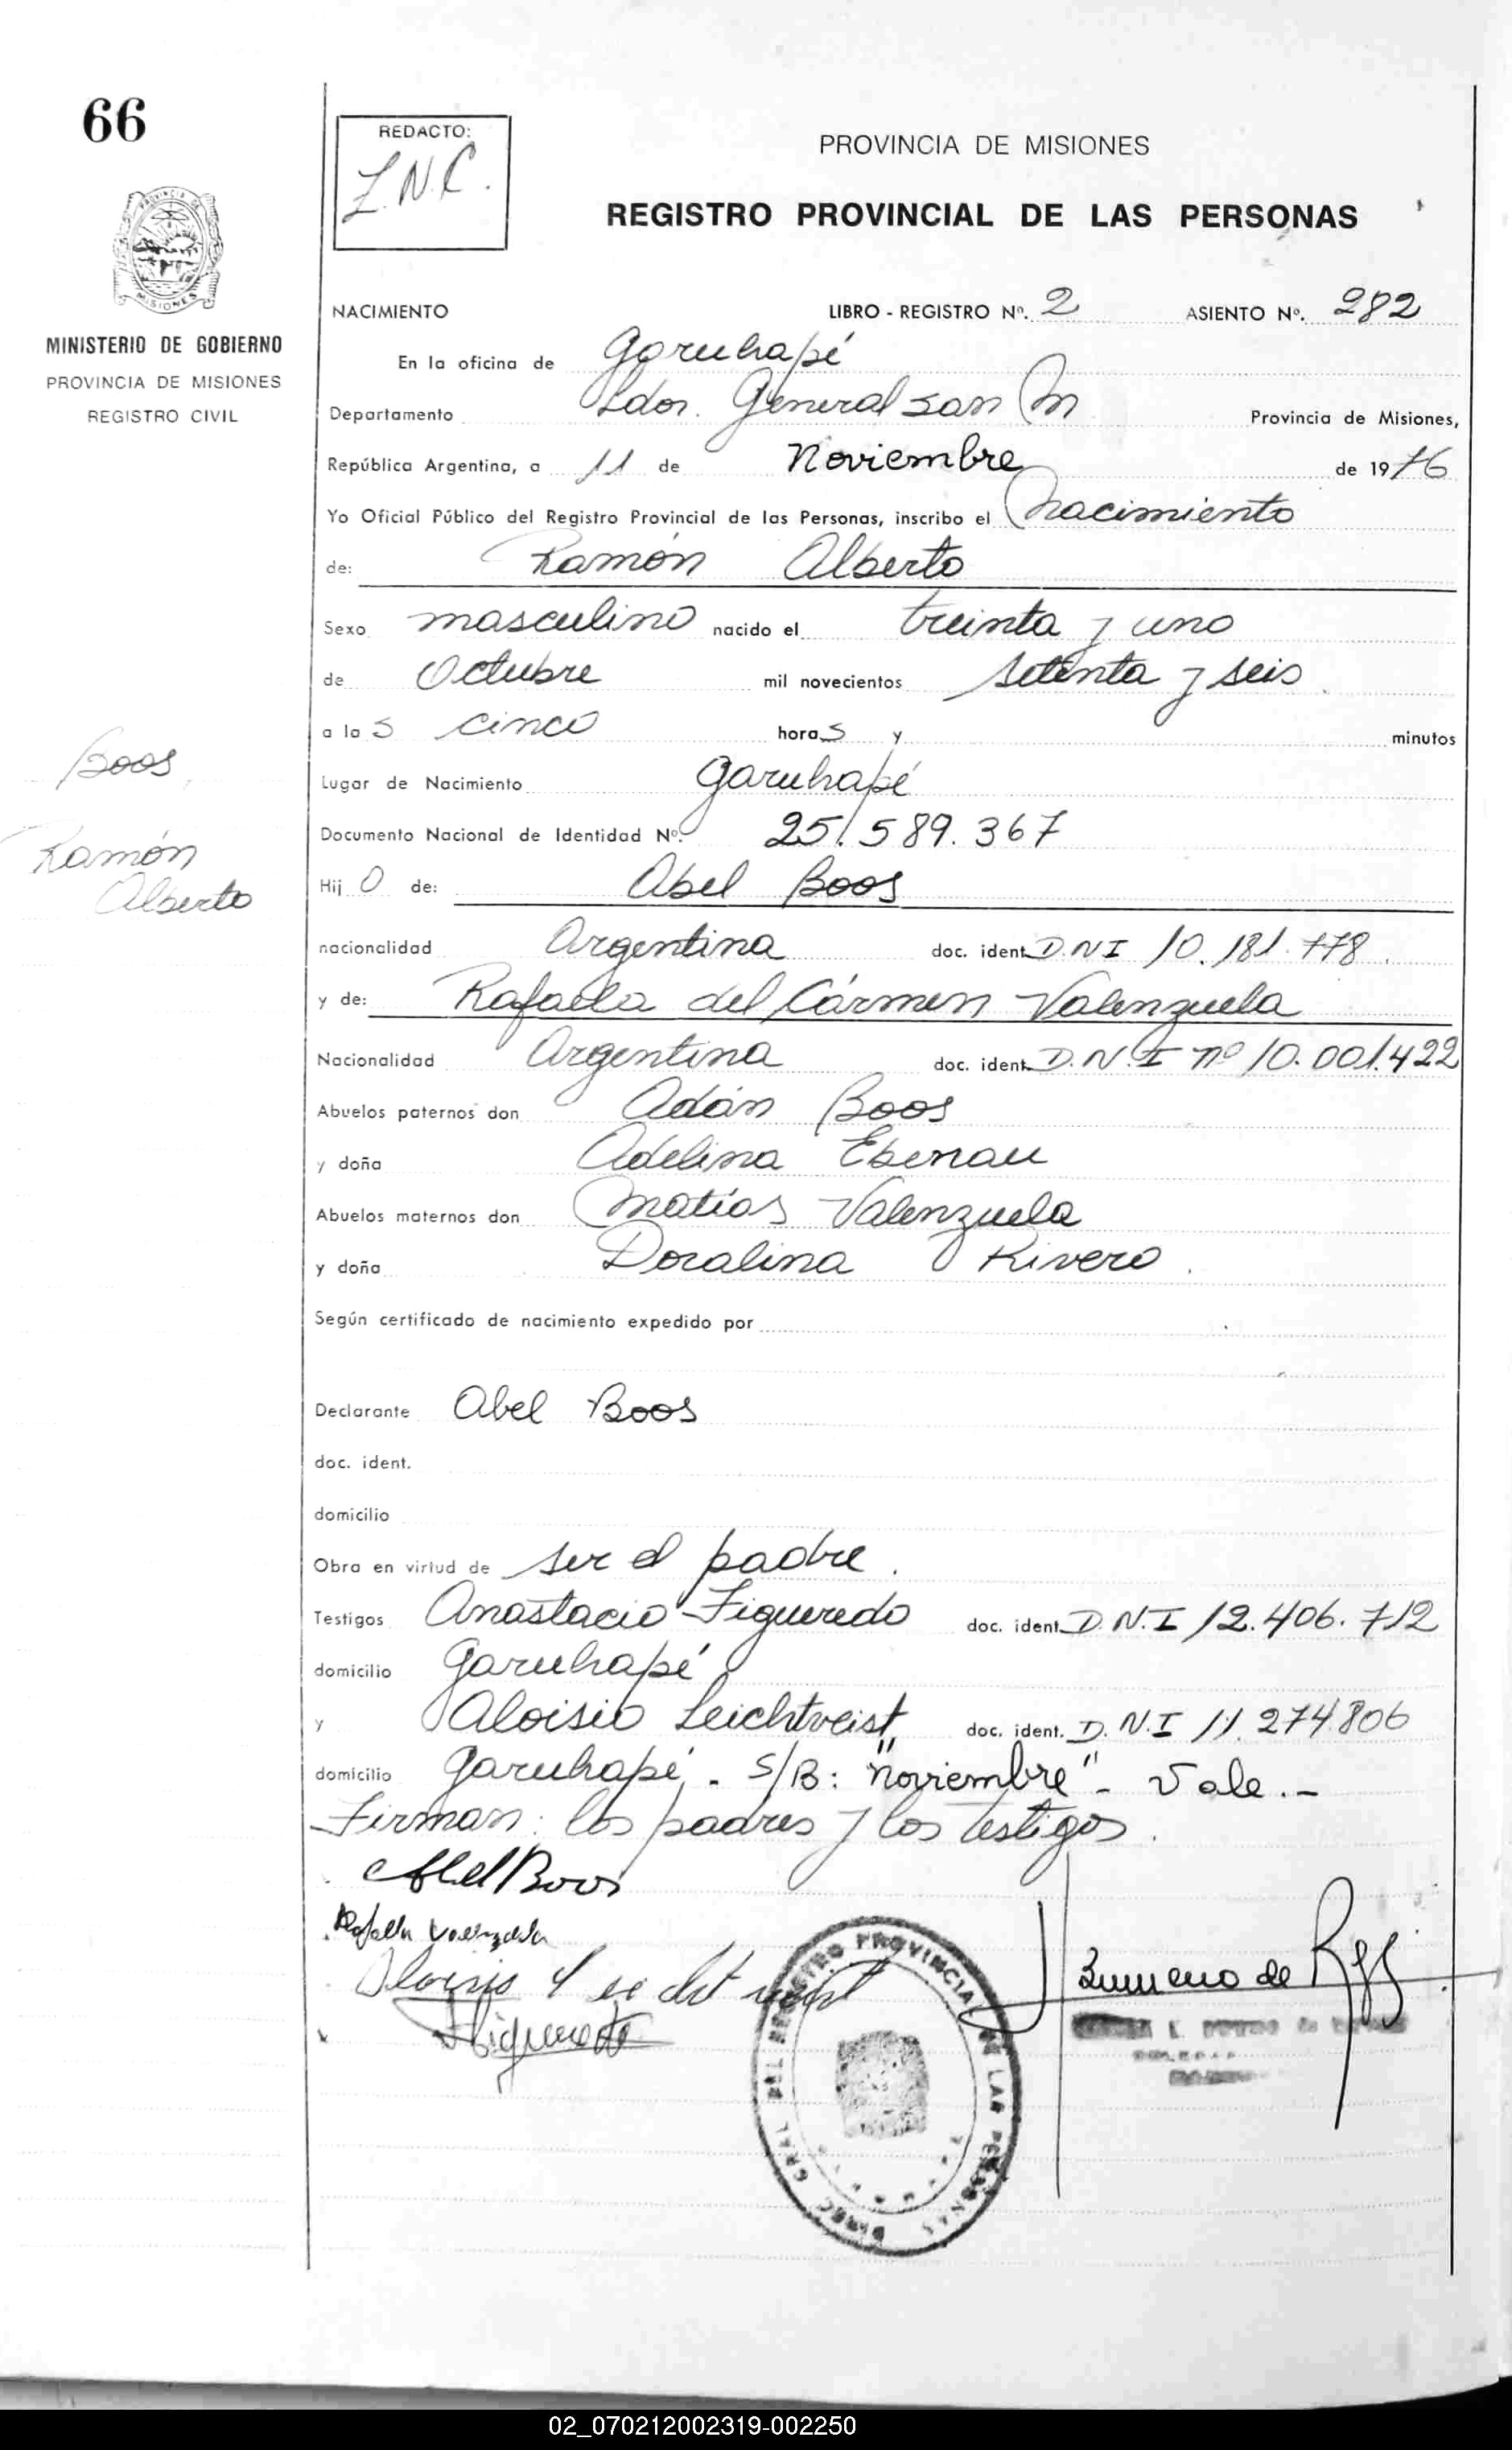 66
REDACTO:
Z.N.C.
PROVINCIA DE MISIONES
REGISTRO PROVINCIAL DE LAS PERSONAS
PROVINCIA DE
MISIONES
MINISTERIO DE GOBIERNO
PROVINCIA DE MISIONES
REGISTRO CIVIL
NACIMIENTO LIBRO - REGISTRO Nº. 2 ASIENTO Nº. 282
En la oficina de Garuhapé
Departamento Ldor. General San M Provincia de Misiones,
República Argentina, a 11 de Noviembre de 1976
Yo Oficial Público del Registro Provincial de las Personas, inscribo el Nacimiento
de: Ramón Alberto
Sexo masculino nacido el treinta y uno
de Octubre mil novecientos setenta y seis
a las cinco horas y minutos
Boos,
Ramón
Alberto
Lugar de Nacimiento Garuhapé
Documento Nacional de Identidad Nº. 25.589.367
Hijo de: Abel Boos
nacionalidad Argentina doc. ident. D.N.I 10.181.778.
y de: Rafaela del Cármen Valenzuela
Nacionalidad Argentina doc. ident. D.N.I nº 10.001.422
Abuelos paternos don Adán Boos
y doña Adelina Ebenau
Abuelos maternos don Matías Valenzuela
y doña Doralina Rivero.
Según certificado de nacimiento expedido por
Declarante Abel Boos
doc. ident.
domicilio
Obra en virtud de ser el padre.
Testigos Anastacio Figueredo doc. ident. D.N.I 12.406.712
domicilio Garuhapé
y Aloisio Leichtveist, doc. ident. D.N.I 11.274.806
domicilio Garuhapé. - S/B: "noviembre" - Vale. -
Firman: los padres y los testigos.
Abel Boos
Rafaela Valenzuela
Figueredo
DIREC. GRAL. DEL REGISTRO PROVINCIAL DE LAS PERSONAS
02_070212002319-002250